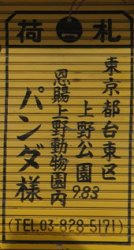 荷札
東京都台東区
上野公園 9.83
恩賜上野動物園内
パンダ様
(TEL.03-828-5171)